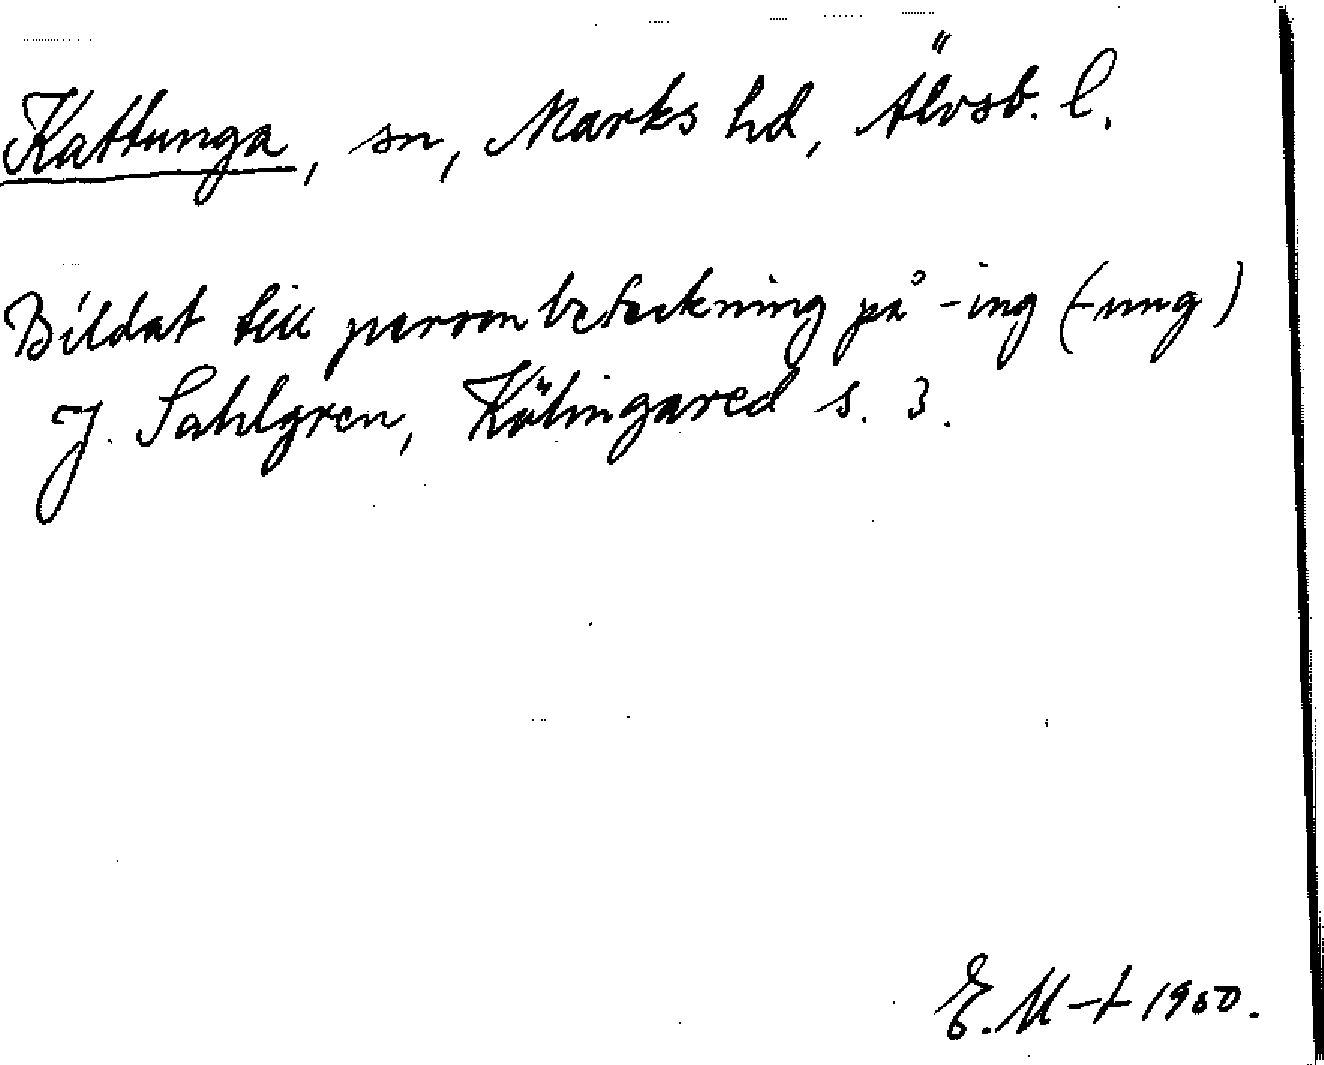 Kattunga, sn, Marks hd, Älvsb. l.
Bildat till personbeteckning på -ing (-ung)
J. Sahlgren, Kölingared s. 3.
E. M-t 1950.